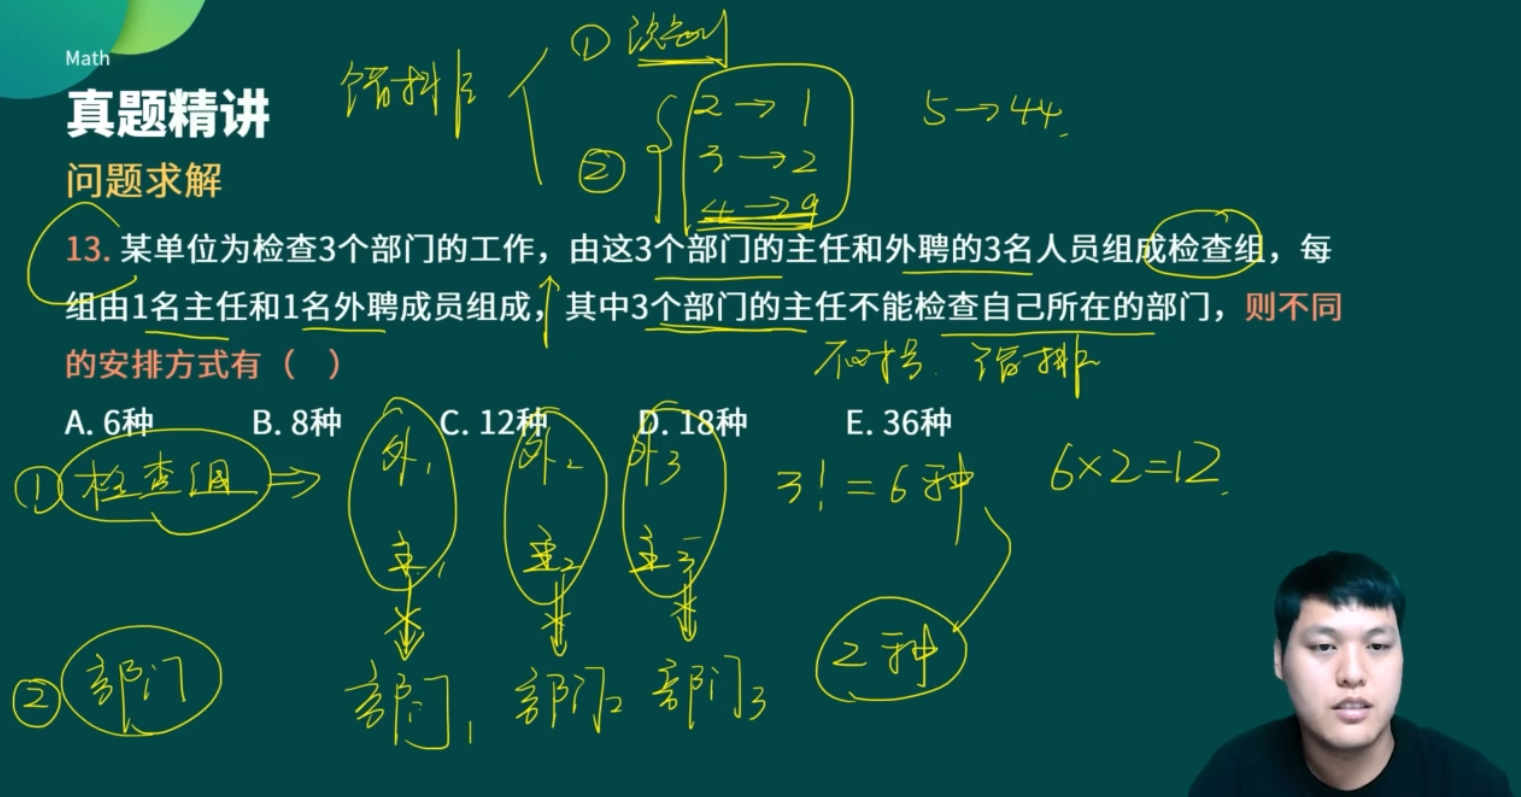 Math
真题精讲
问题求解
错排
①
②
2→1
3→2
4→9
5→44.
13. 某单位为检查3个部门的工作，由这3个部门的主任和外聘的3名人员组成检查组，每
组由1名主任和1名外聘成员组成，其中3个部门的主任不能检查自己所在的部门，则不同
的安排方式有（ ）
不对号 错排
A. 6种 B. 8种 C. 12种 D. 18种 E. 36种
①检查组⇒ 外1 外2 外3 3!=6种 6×2=12.
主1 主2 主3
②部门 部门1 部门2 部门3 2种